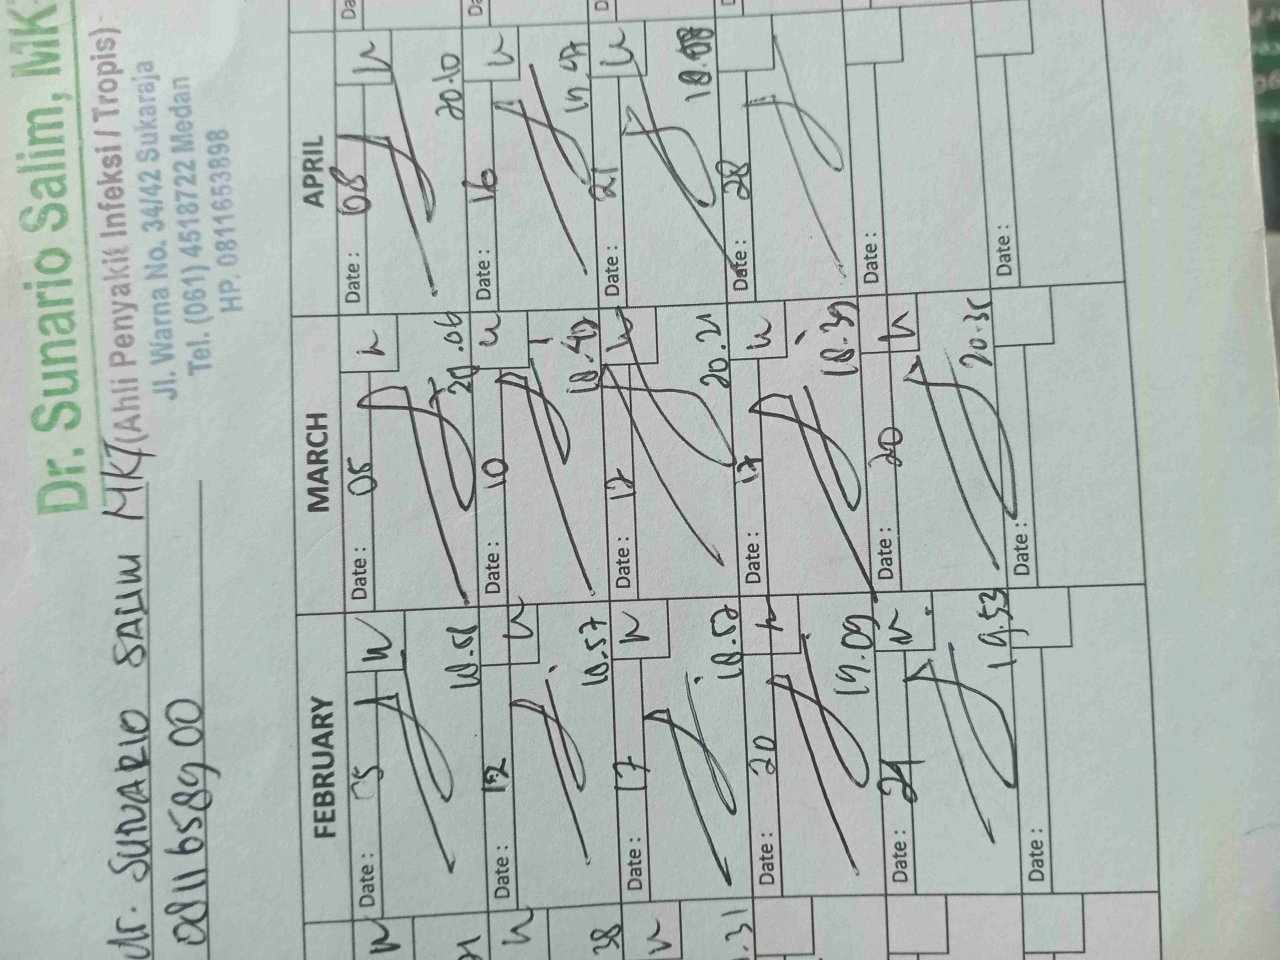 Dr. Sunario Salim, MK
(Ahli Penyakit Infeksi / Tropis)
Jl. Warna No. 34/42 Sukaraja
Tel. (061) 4518722 Medan
HP. 0811653898
dr. SUNARIO SALIM MKT
FEBRUARY MARCH APRIL
Date : 05 Date : 05 Date : 08
18.58 20.06 20.10
Date : 12 Date : 10 Date : 16
18.57 18.42 19.47
Date : 17 Date : 12 Date : 21
18.52 20.21 18.08
Date : 20 Date : 17 Date : 28
19.09 18.39
Date : 24 Date : 20 Date :
19.53 20.35
Date : Date : Date :
38
.31